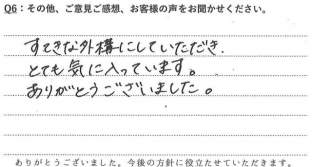 Q6：その他、ご意見ご感想、お客様の声をお聞かせください。
すてきな外構にしていただき.
とても気に入っています。
ありがとうございました。
ありがとうございました。今後の方針に役立たせていただきます。